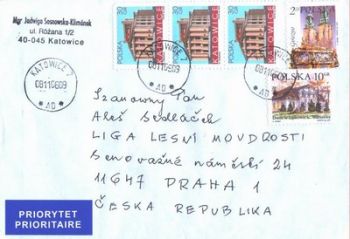 Mgr Jadwiga Sosnowska-Klimánek
ul. Różana 1/2
40-045 Katowice
POLSKA KATOWICE
POLSKA KATOWICE
POLSKA KATOWICE
POLSKA 10 zł
KATOWICE 2
AD
KATOWICE 2
AD
Szanowny Pan
Aleš Sedláček
LIGA LESNÍ MOUDROSTI
Senovážné náměstí 24
11647 PRAHA 1
ČESKA REPUBLIKA
PRIORYTET
PRIORITAIRE